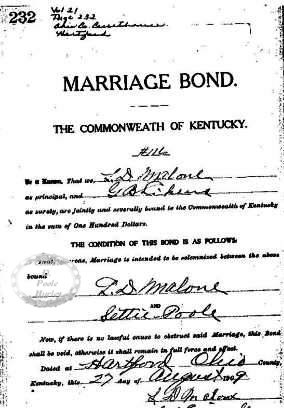 232
Vol 21
Page 232
Ohio Co. Courthouse
Hartford
MARRIAGE BOND.
THE COMMONWEATH OF KENTUCKY.
Be it Known, That we, L. D. Malone
as principal, and G. B. Likens
as surety, are jointly and severally bound to the Commonwealth of Kentucky
in the sum of One Hundred Dollars.
THE CONDITION OF THIS BOND IS AS FOLLOWS:
Marriage is intended to be solemnized between the above
bound
Poole
L. D. Malone
AND
Settie Poole
Now, if there is no lawful cause to obstruct said Marriage, this Bond
shall be void, otherwise it shall remain in full force and effect.
Dated at Hartford Ohio County,
Kentucky, this 27 day of August
L. D. Malone